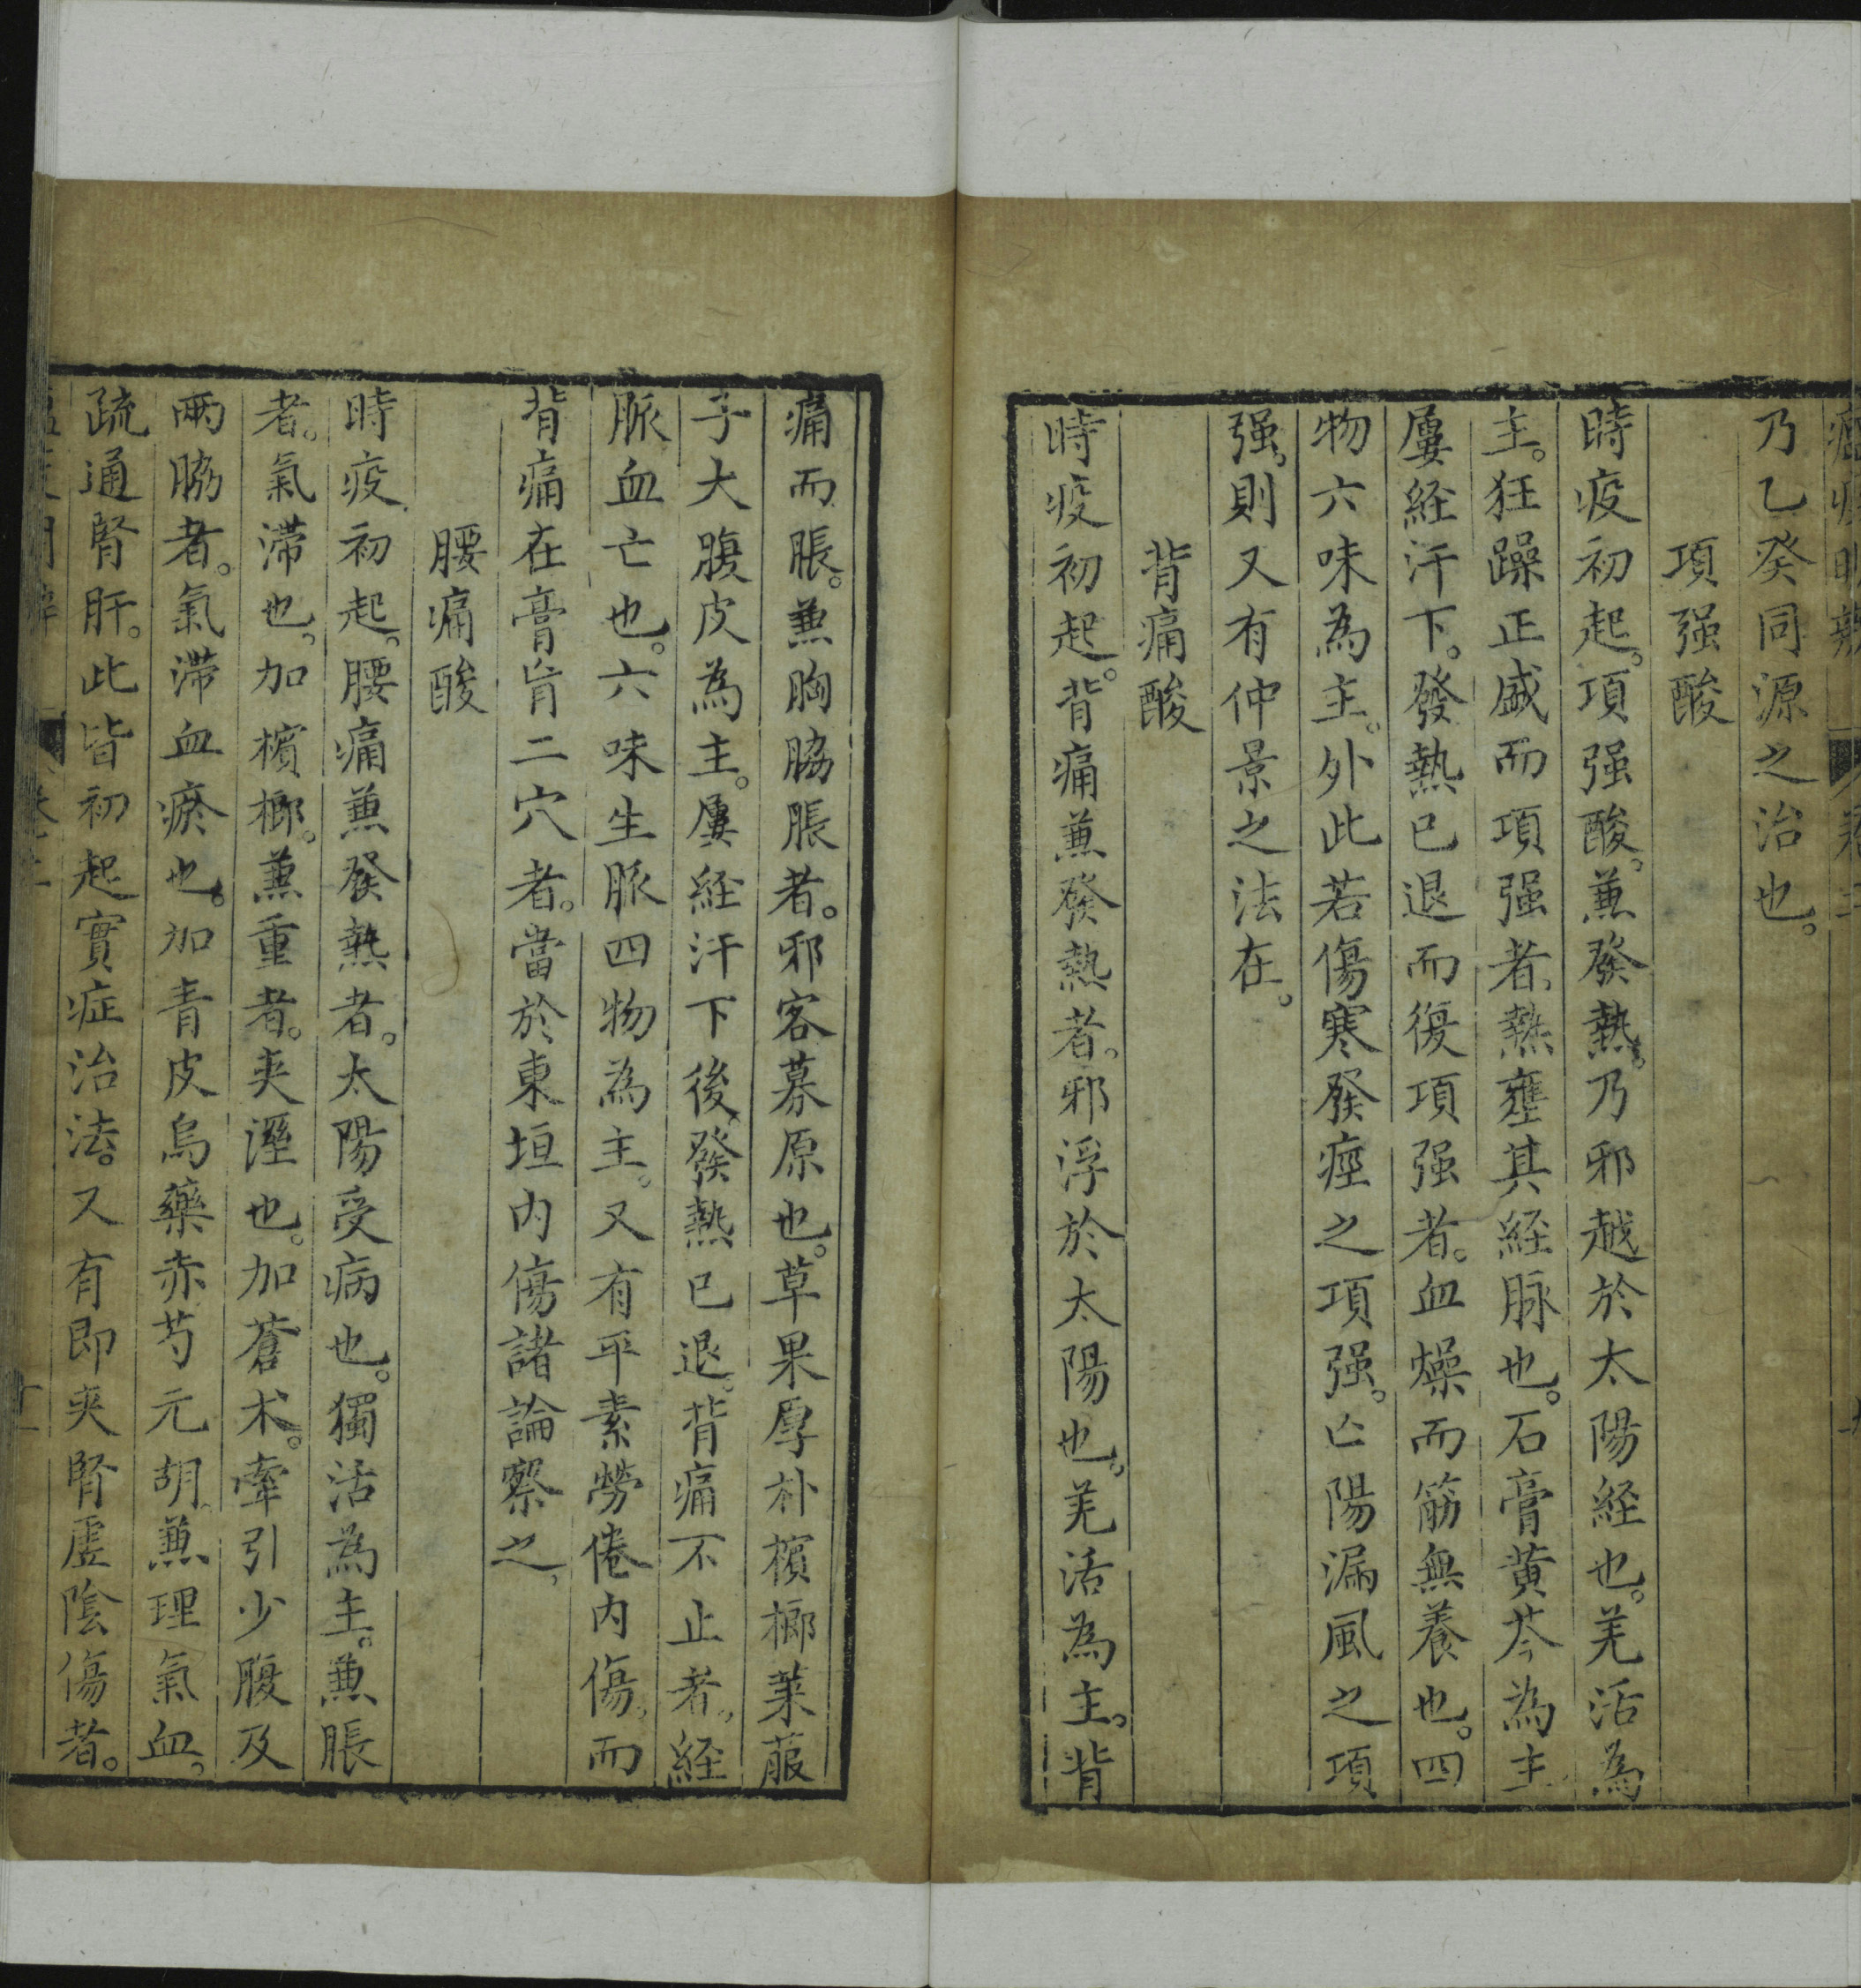 乃乙癸同源之治也。
項强酸
時疫初起。項强酸。兼發熱。乃邪越於太陽経也。羌活為
主。狂躁正盛而項强者、熱壅其経脉也。石膏黄芩為主
屢経汗下。發熱已退而復項强者。血燥而筋無養也。四
物六味為主。外此若傷寒發痙之項强。亡陽漏風之項
强。則又有仲景之法在。
背痛酸
時疫初起。背痛兼發熱者。邪浮於太陽也。羌活為主。背
痛而脹。兼胸脇脹者。邪客募原也。草果厚朴檳榔萊菔
子大腹皮為主。屢経汗下後、發熱已退。背痛不止者。経
脈血亡也。六味生脈四物為主。又有平素勞倦內傷。而
背痛在膏肓二穴者。當於東垣內傷諸論察之。
腰痛酸
時疫初起。腰痛兼發熱者。太陽受病也。獨活為主。兼脹
者。氣滯也。加檳榔。兼重者。夾溼也。加蒼术。牽引少腹及
兩脇者。氣滯血瘀也。加青皮烏藥赤芍元胡。兼理氣血。
疏通腎肝。此皆初起實症治法。又有即夾腎虛陰傷者。